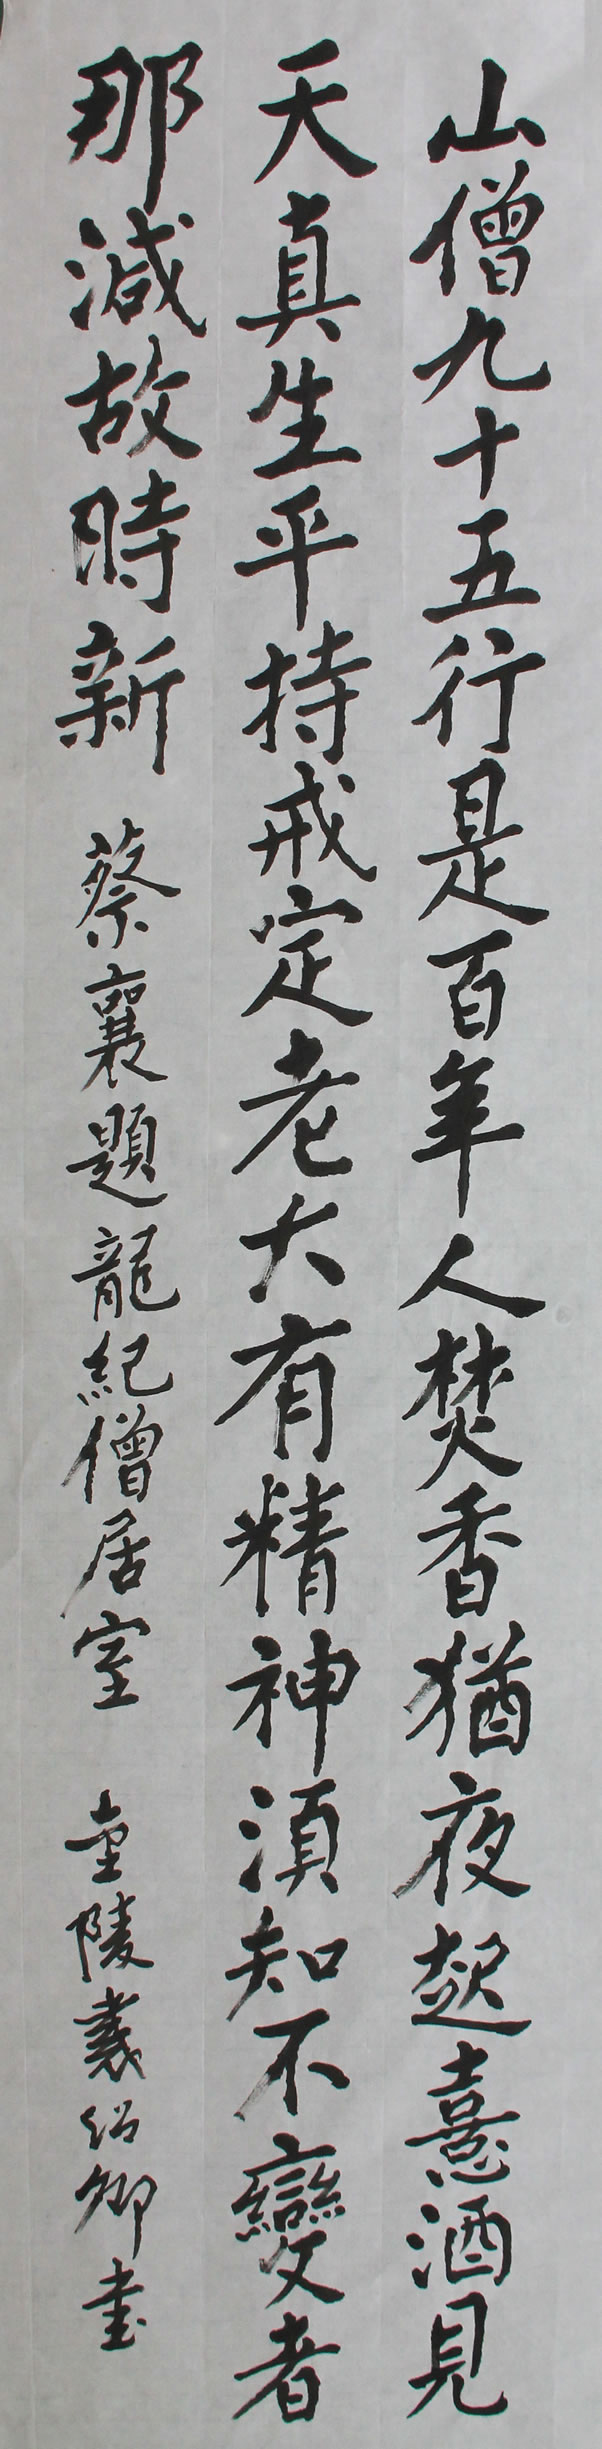 山僧九十五行是百年人焚香猶夜起憙酒見
天真生平持戒定老大有精神須知不變者
那減故時新
蔡襄題龍紀僧居室
金陵龔紹卿書